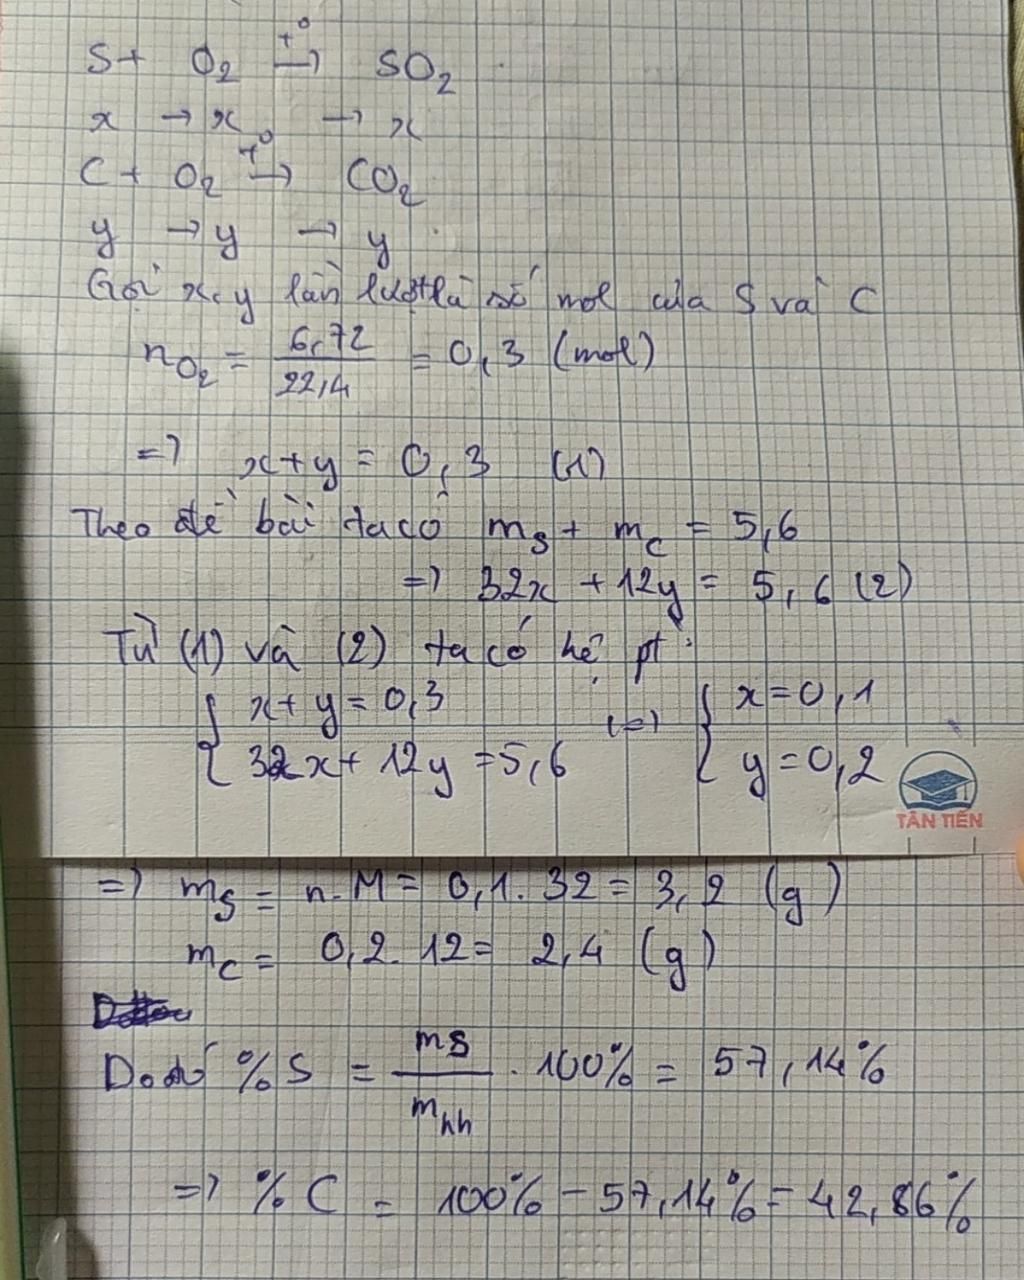 S + O₂ →(t°) SO₂
x → x → x
C + O₂ →(t°) CO₂
y → y → y
Gọi x, y lần lượt là số mol của S và C
nO₂ = 6,72/22,4 = 0,3 (mol)
=> x+y = 0,3 (1)
Theo đề bài ta có mS + mC = 5,6
=> 32x + 12y = 5,6 (2)
Từ (1) và (2) ta có hệ pt:
{ x+y = 0,3 <=> { x = 0,1
{ 32x + 12y = 5,6 { y = 0,2
TÂN TIẾN
=> mS = n.M = 0,1.32 = 3,2 (g)
mC = 0,2.12 = 2,4 (g)
Do đó %S = mS/mhh . 100% = 57,14%
=> %C = 100% - 57,14% = 42,86%